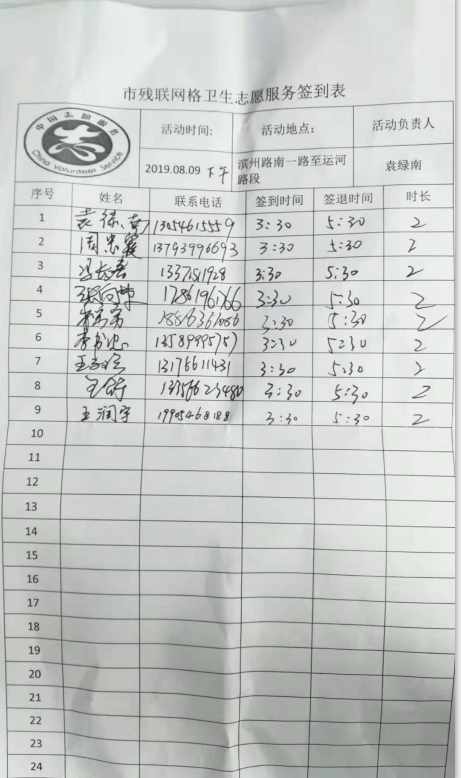 市残联网格卫生志愿服务签到表
中国志愿服务
China Volunteer Service
活动时间: 活动地点: 活动负责人
2019.08.09 下午 滨州路南一路至运河路段 袁绿南
序号 姓名 联系电话 签到时间 签退时间 时长
1 袁绿南 13054615559 3:30 5:30 2
2 周忠霞 13793996693 3:30 5:30 2
3 3:30 5:30 2
4 17861961766 3:30 5:30 2
5 3:30 5:30 2
6 李书忠 13589995757 3:30 5:30 2
7 13176611431 3:30 5:30 2
8 3:30 5:30 2
9 王润宇 19905468188 3:30 5:30 2
10
11
12
13
14
15
16
17
18
19
20
21
22
23
24